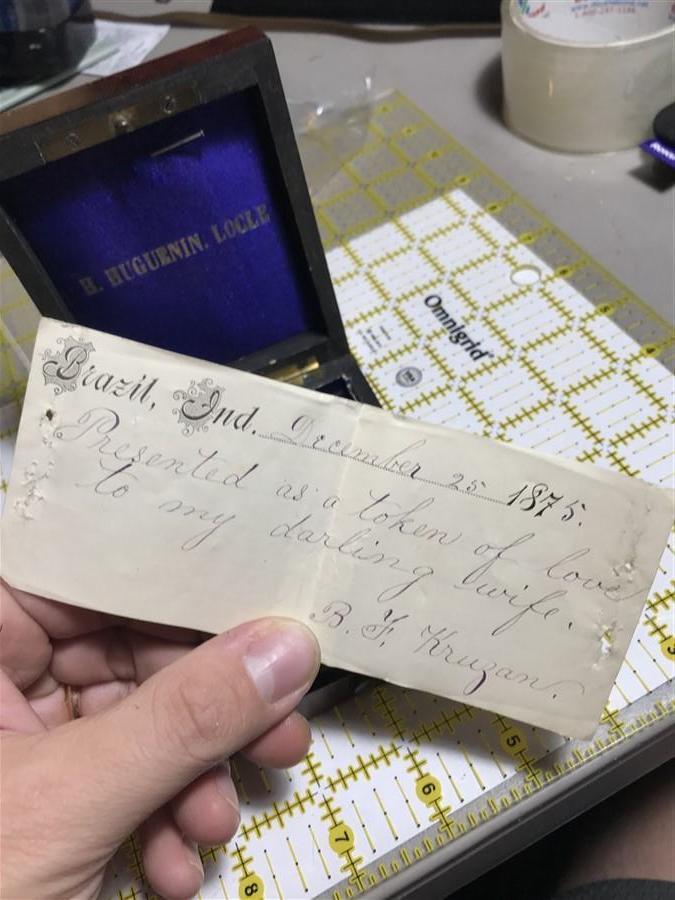 H. HUGUENIN. LOCLE
Omnigrid
Brazil, Ind. December 25 1875.
Presented as a token of love
to my darling wife.
B. F. Kruzan.
5
6
7
8